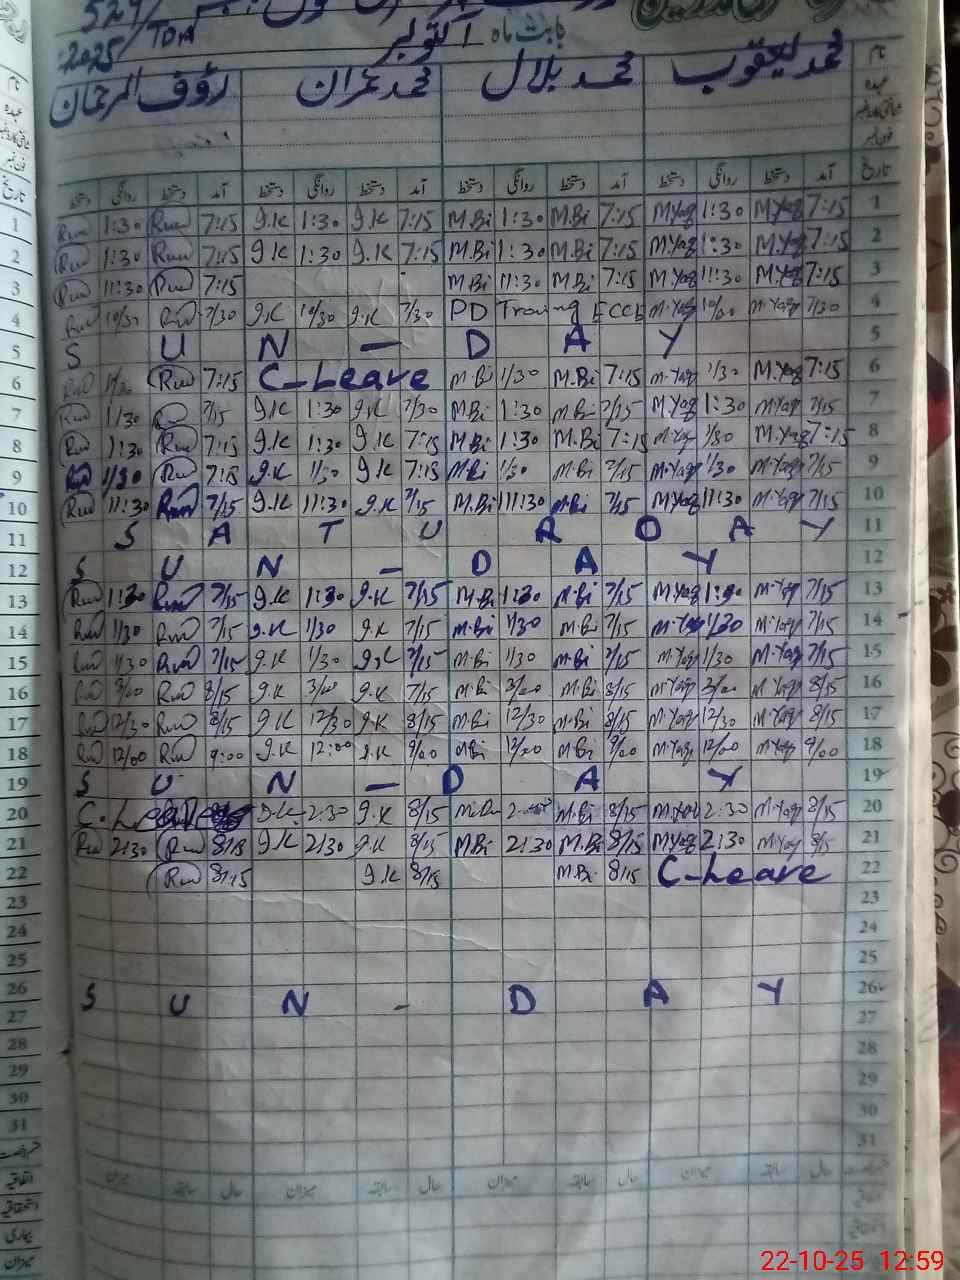 529/
2025/ TDA بابت ماہ اکتوبر
نام محمد یعقوب محمد بلال محمد عمران رؤف الرحمان
عہدہ
شناختی کارڈ نمبر
فون نمبر
تاریخ آمد دستخط روانگی دستخط آمد دستخط روانگی دستخط آمد دستخط روانگی دستخط آمد دستخط روانگی دستخط
1 Rw 1:30 Rw 7:15 J.K 1:30 J.K 7:15 M.Bi 1:30 M.Bi 7:15 M.Yaq 1:30 M.Yaq 7:15 1
2 Rw 1:30 Rw 7:15 J.K 1:30 J.K 7:15 M.Bi 1:30 M.Bi 7:15 M.Yaq 1:30 M.Yaq 7:15 2
3 Rw 11:30 Rw 7:15 M.Bi 11:30 M.Bi 7:15 M.Yaq 11:30 M.Yaq 7:15 3
4 Rw 10/30 Rw 7/30 J.K 10/30 J.K 7/30 PD ECCE M.Yaq 10/00 M.Yaq 7/30 4
5 S U N - D A Y 5
6 Rw 1/30 Rw 7:15 C-Leave M.Bi 1/30 M.Bi 7:15 M.Yaq 1/30 M.Yaq 7:15 6
7 Rw 1/30 Rw 7/15 J.K 1:30 J.K 7/30 M.Bi 1:30 M.Bi 7/15 M.Yaq 1:30 M.Yaq 7/15 7
8 Rw 1:30 Rw 7:15 J.K 1:30 J.K 7:15 M.Bi 1:30 M.Bi 7:15 M.Yaq 1/30 M.Yaq 7:15 8
9 Rw 1/30 Rw 7:15 J.K 1/30 J.K 7:15 M.Bi 1/30 M.Bi 7/15 M.Yaq 1/30 M.Yaq 7/15 9
10 Rw 11:30 Rw 7/15 J.K 11:30 J.K 7/15 M.Bi 11:30 M.Bi 7/15 M.Yaq 11:30 M.Yaq 7/15 10
11 S A T U R D A Y 11
12 S U N - D A Y 12
13 Rw 1:30 Rw 7/15 J.K 1:30 J.K 7/15 M.Bi 1:30 M.Bi 7/15 M.Yaq 1:30 M.Yaq 7/15 13
14 Rw 1/30 Rw 7/15 J.K 1/30 J.K 7/15 M.Bi 1/30 M.Bi 7/15 M.Yaq 1/30 M.Yaq 7/15 14
15 Rw 1/30 Rw 7/15 J.K 1/30 J.K 7/15 M.Bi 1/30 M.Bi 7/15 M.Yaq 1/30 M.Yaq 7/15 15
16 Rw 3/00 Rw 8/15 J.K 3/00 J.K 7/15 M.Bi 3/00 M.Bi 8/15 M.Yaq 3/00 M.Yaq 8/15 16
17 Rw 12/30 Rw 8/15 J.K 12/30 J.K 8/15 M.Bi 12/30 M.Bi 8/15 M.Yaq 12/30 M.Yaq 8/15 17
18 Rw 12/00 Rw 9:00 J.K 12:00 J.K 9/00 M.Bi 12/00 M.Bi 9/00 M.Yaq 12/00 M.Yaq 9/00 18
19 S U N - D A Y 19
20 C.Leave J.K 2:30 J.K 8/15 M.Bi M.Bi 8/15 M.Yaq 2:30 M.Yaq 8/15 20
21 Rw 2:30 Rw 8/15 J.K 2:30 J.K 8/15 M.Bi 2:30 M.Bi 8/15 M.Yaq 2:30 M.Yaq 8/15 21
22 Rw 8/15 J.K 8/15 M.Bi 8/15 C-Leave 22
23 23
24 24
25 25
26 S U N - D A Y 26
27 27
28 28
29 29
30 30
31 31
حال سابقہ میزان حال سابقہ میزان حال سابقہ میزان حال سابقہ میزان
اتفاقیہ
استحقاقیہ
بیماری
میزان
22-10-25 12:59